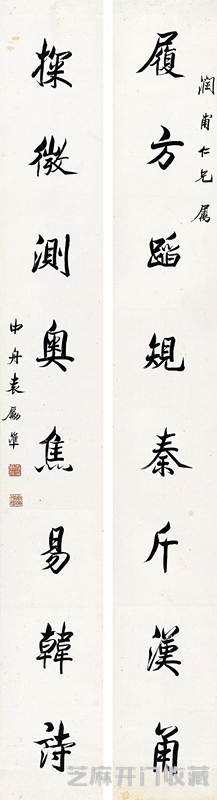 潤甫仁兄屬
履方蹈規秦斤漢甬
探微測奧焦易韓詩
中舟袁勵準
芝麻开门收藏